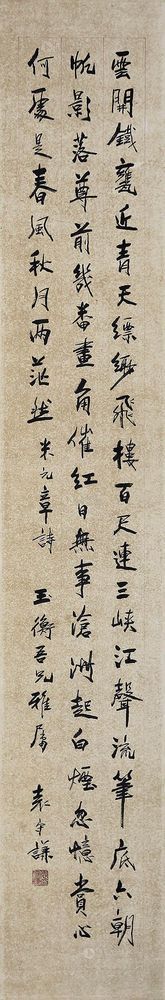 雲開鐵甕近青天縹緲飛樓百尺連三峽江聲流筆底六朝
帆影落尊前幾番畫角催紅日無事滄洲起白煙忽憶賞心
何處是春風秋月兩茫然 米元章詩 玉衡吾兄雅屬 袁守謙